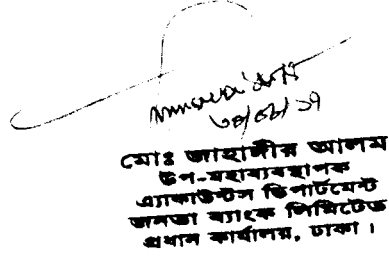 মোঃ জাহাঙ্গীর আলম
উপ-মহাব্যবস্থাপক
এ্যাকাউন্টস ডিপার্টমেন্ট
জনতা ব্যাংক লিমিটেড
প্রধান কার্যালয়, ঢাকা।